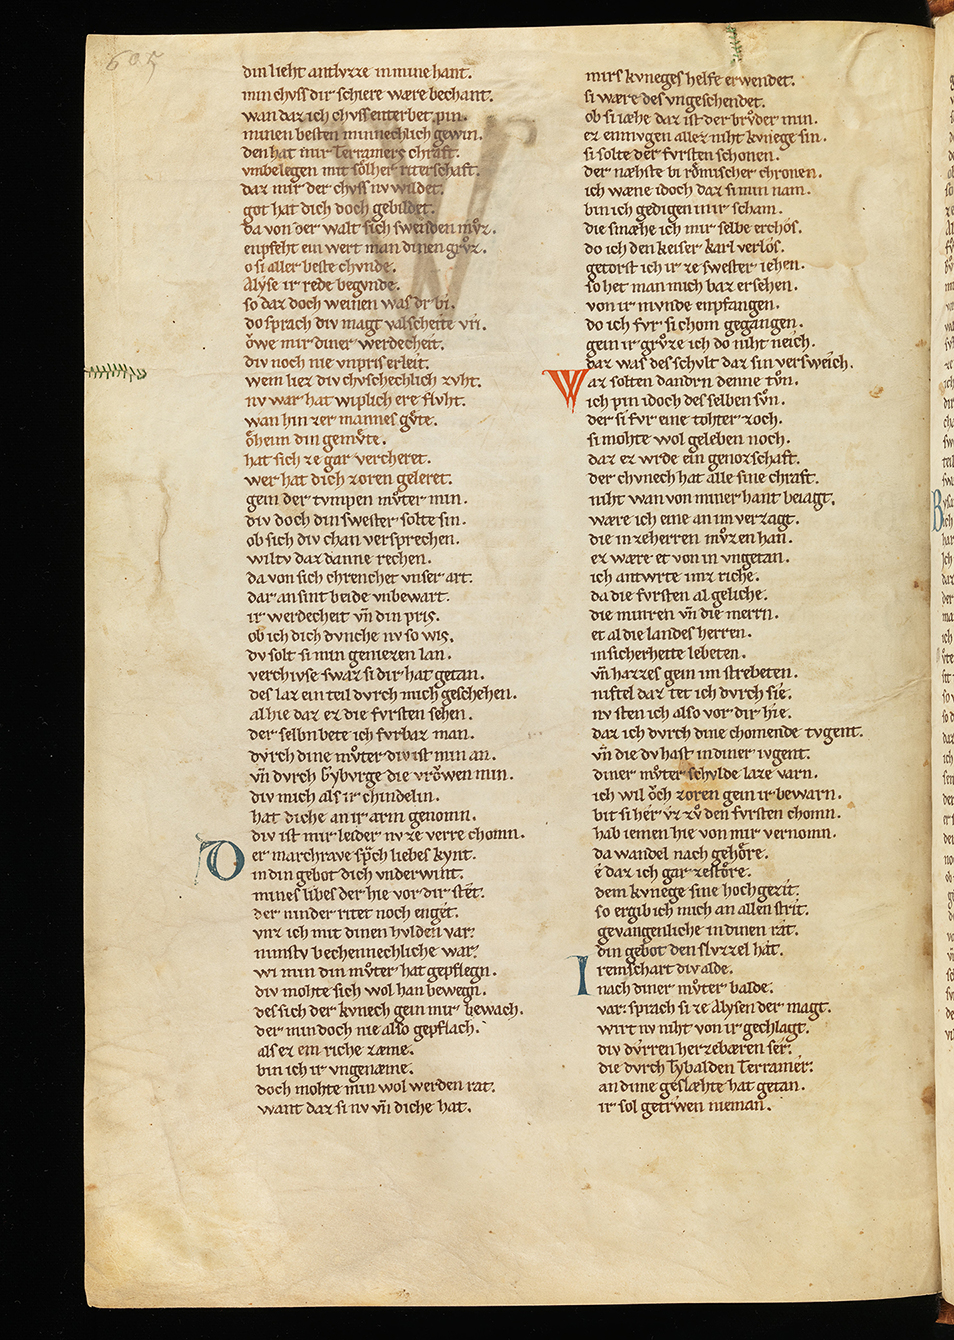 605
din lieht antlvzze in mine hant.
min chvss dir schiere wære bechant.
wan daz ich chvssen terbet pin.
minen besten minnechlich gewin.
den hat mir Terramers chraft.
vmbelegen mit sölher riterschaft.
daz mir der chvss nv wildet.
got hat dich doch gebildet.
da von der walt sich swenden mvͦz.
enpfeht ein wert man dinen grvͦz.
o si aller beste chvnde.
Alyse ir rede begvnde.
so daz doch weinen was dr bi.
do sprach div magt valscheite vri.
oͮwe mir diner werdecheit.
div noch nie vnpris erleit.
wem liez div chvschechlich zvht.
nv war hat wiplich ere flvht.
wan hin zer mannes gvͤte.
oͤheim din gemvͤte.
hat sich ze gar vercheret.
wer hat dich zoren geleret.
gein der tvmpen mvͦter min.
div doch din swester solte sin.
ob sich div chan versprechen.
wiltv daz danne rechen.
da von sich chrenchet vnser art.
dar an sint beide vnbewart.
ir werdecheit vn̄ din pris.
ob ich dich dvnche nv so wis.
dv solt si min geniezen lan.
verchivse swaz si dir hat getan.
des laz ein teil dvrch mich geschehen.
al hie daz ez die fvrsten sehen.
der selbn bete ich fvrbaz man.
dvrch dine mvͦter div ist min an.
vn̄ dvrch Gybvrge die vroͮwen min.
div mich als ir chindelin.
hat diche an ir arm genomn.
div ist mir leider nv ze verre chomn.
Der marchrave sp̄ch liebes kynt.
in din gebot dich vnderwint.
mines libes der hie vor dir stet.
der ninder ritet noch enget.
vnz ich mit dinen hvlden var.
nimstv bechennechliche war.
wi min din mvͦter hat gepflegn.
div mohte sich wol han bewegn.
des sich der kvnech gein mir bewach.
der min doch nie also gepflach.
als ez ein riche zæme.
bin ich ir vngenæme.
doch mohte min wol werden rat.
want daz si nv vn̄ diche hat.
mirs kvneges helfe erwendet.
si wære des vngeschendet.
ob si iæhe daz ist der brvͦder min.
ez enmvgen allez niht kvnege sin.
si solte der fvrsten schonen.
der næhste bi römischer chronen.
ich wæne idoch daz si min nam.
bin ich gedigen in ir scham.
die smæhe ich mir selbe erchos.
do ich den keiser karl verlos.
getorst ich ir ze swester iehen.
so het man mich baz ersehen.
von ir mvnde enpfangen.
do ich fvr si chom gegangen.
gein ir grvͦze ich do niht neich.
daz was des schvlt daz sin versweich.
Waz solten dandrn denne tvͦn.
ich pin idoch des selben svͦn.
der si fvr eine tohter zoch.
si mohte wol geleben noch.
daz ez wrde ein genozschaft.
der chvnech hat alle sine chraft.
niht wan von miner hant beiagt.
wære ich eine an im verzagt.
die in zeherren mvͦzen han.
ez wære et von in vngetan.
ich antwrte imz riche.
da die fvrsten al geliche.
die minren vn̄ die merrn.
et al die landes herren.
in sicherheite lebeten.
vn̄ hazzes gein im strebeten.
niftel daz tet ich dvrch sie.
nv sten ich also vor dir hie.
daz ich dvrch dine chomende tvgent.
vn̄ die dv hast in diner ivgent.
diner mvͦter schvlde laze varn.
ich wil oͮch zoren gein ir bewarn.
bit si her vz zvͦ den fvrsten chomn.
hab iemen hie von mir vernomn.
da wandel nach gehoͤre.
e daz ich gar zestoͤre.
dem kvnege sine hochgezit.
so ergib ich mich an allen strit.
gevangenliche in dinen rat.
din gebot den slvzzel hat.
Iremschart div alde.
nach diner mvͦter balde.
var: sprach si ze Alysen der magt.
wirt nv niht von ir gechlagt.
div dvrren herzebæren ser.
die dvrch Tybalden Terramer.
an dime geslæhte hat getan.
ir sol getrwen nieman.